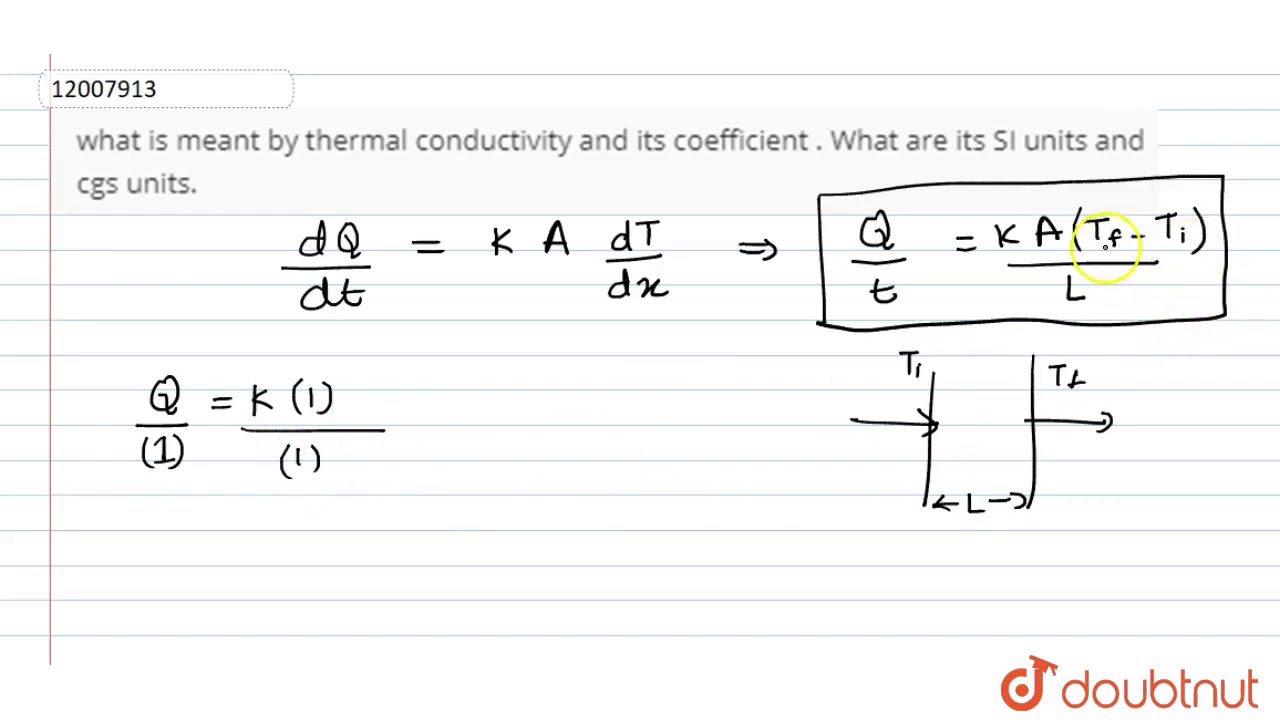 12007913
what is meant by thermal conductivity and its coefficient . What are its SI units and
cgs units.
dQ/dt = K A dT/dx ⇒ Q/t = K A (Tf - Ti)/L
Ti Tf
Q/(1) = K (1)/(1)
L
doubtnut